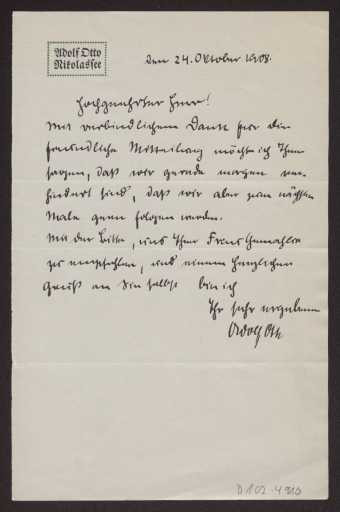 Adolf Otto
Nikolassee
den 24. Oktober 1908.
Hochgeehrter Herr!
Mit verbindlichem Dank für die
freundliche Mitteilung möchte ich Ihnen
sagen, daß wir gerade morgen ver-
hindert sind, daß wir aber zum nächsten
Male gern folgen werden.
Mit der Bitte, uns Ihrer Frau Gemahlin
zu empfehlen, und einem herzlichen
Gruß an Sie selbst bin ich
Ihr sehr ergebener
Adolf Otto